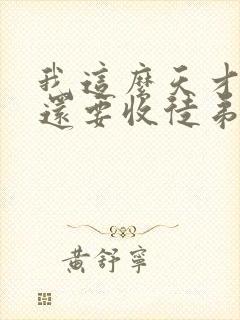 我這麼天才
還要收徒弟
黃舒寧